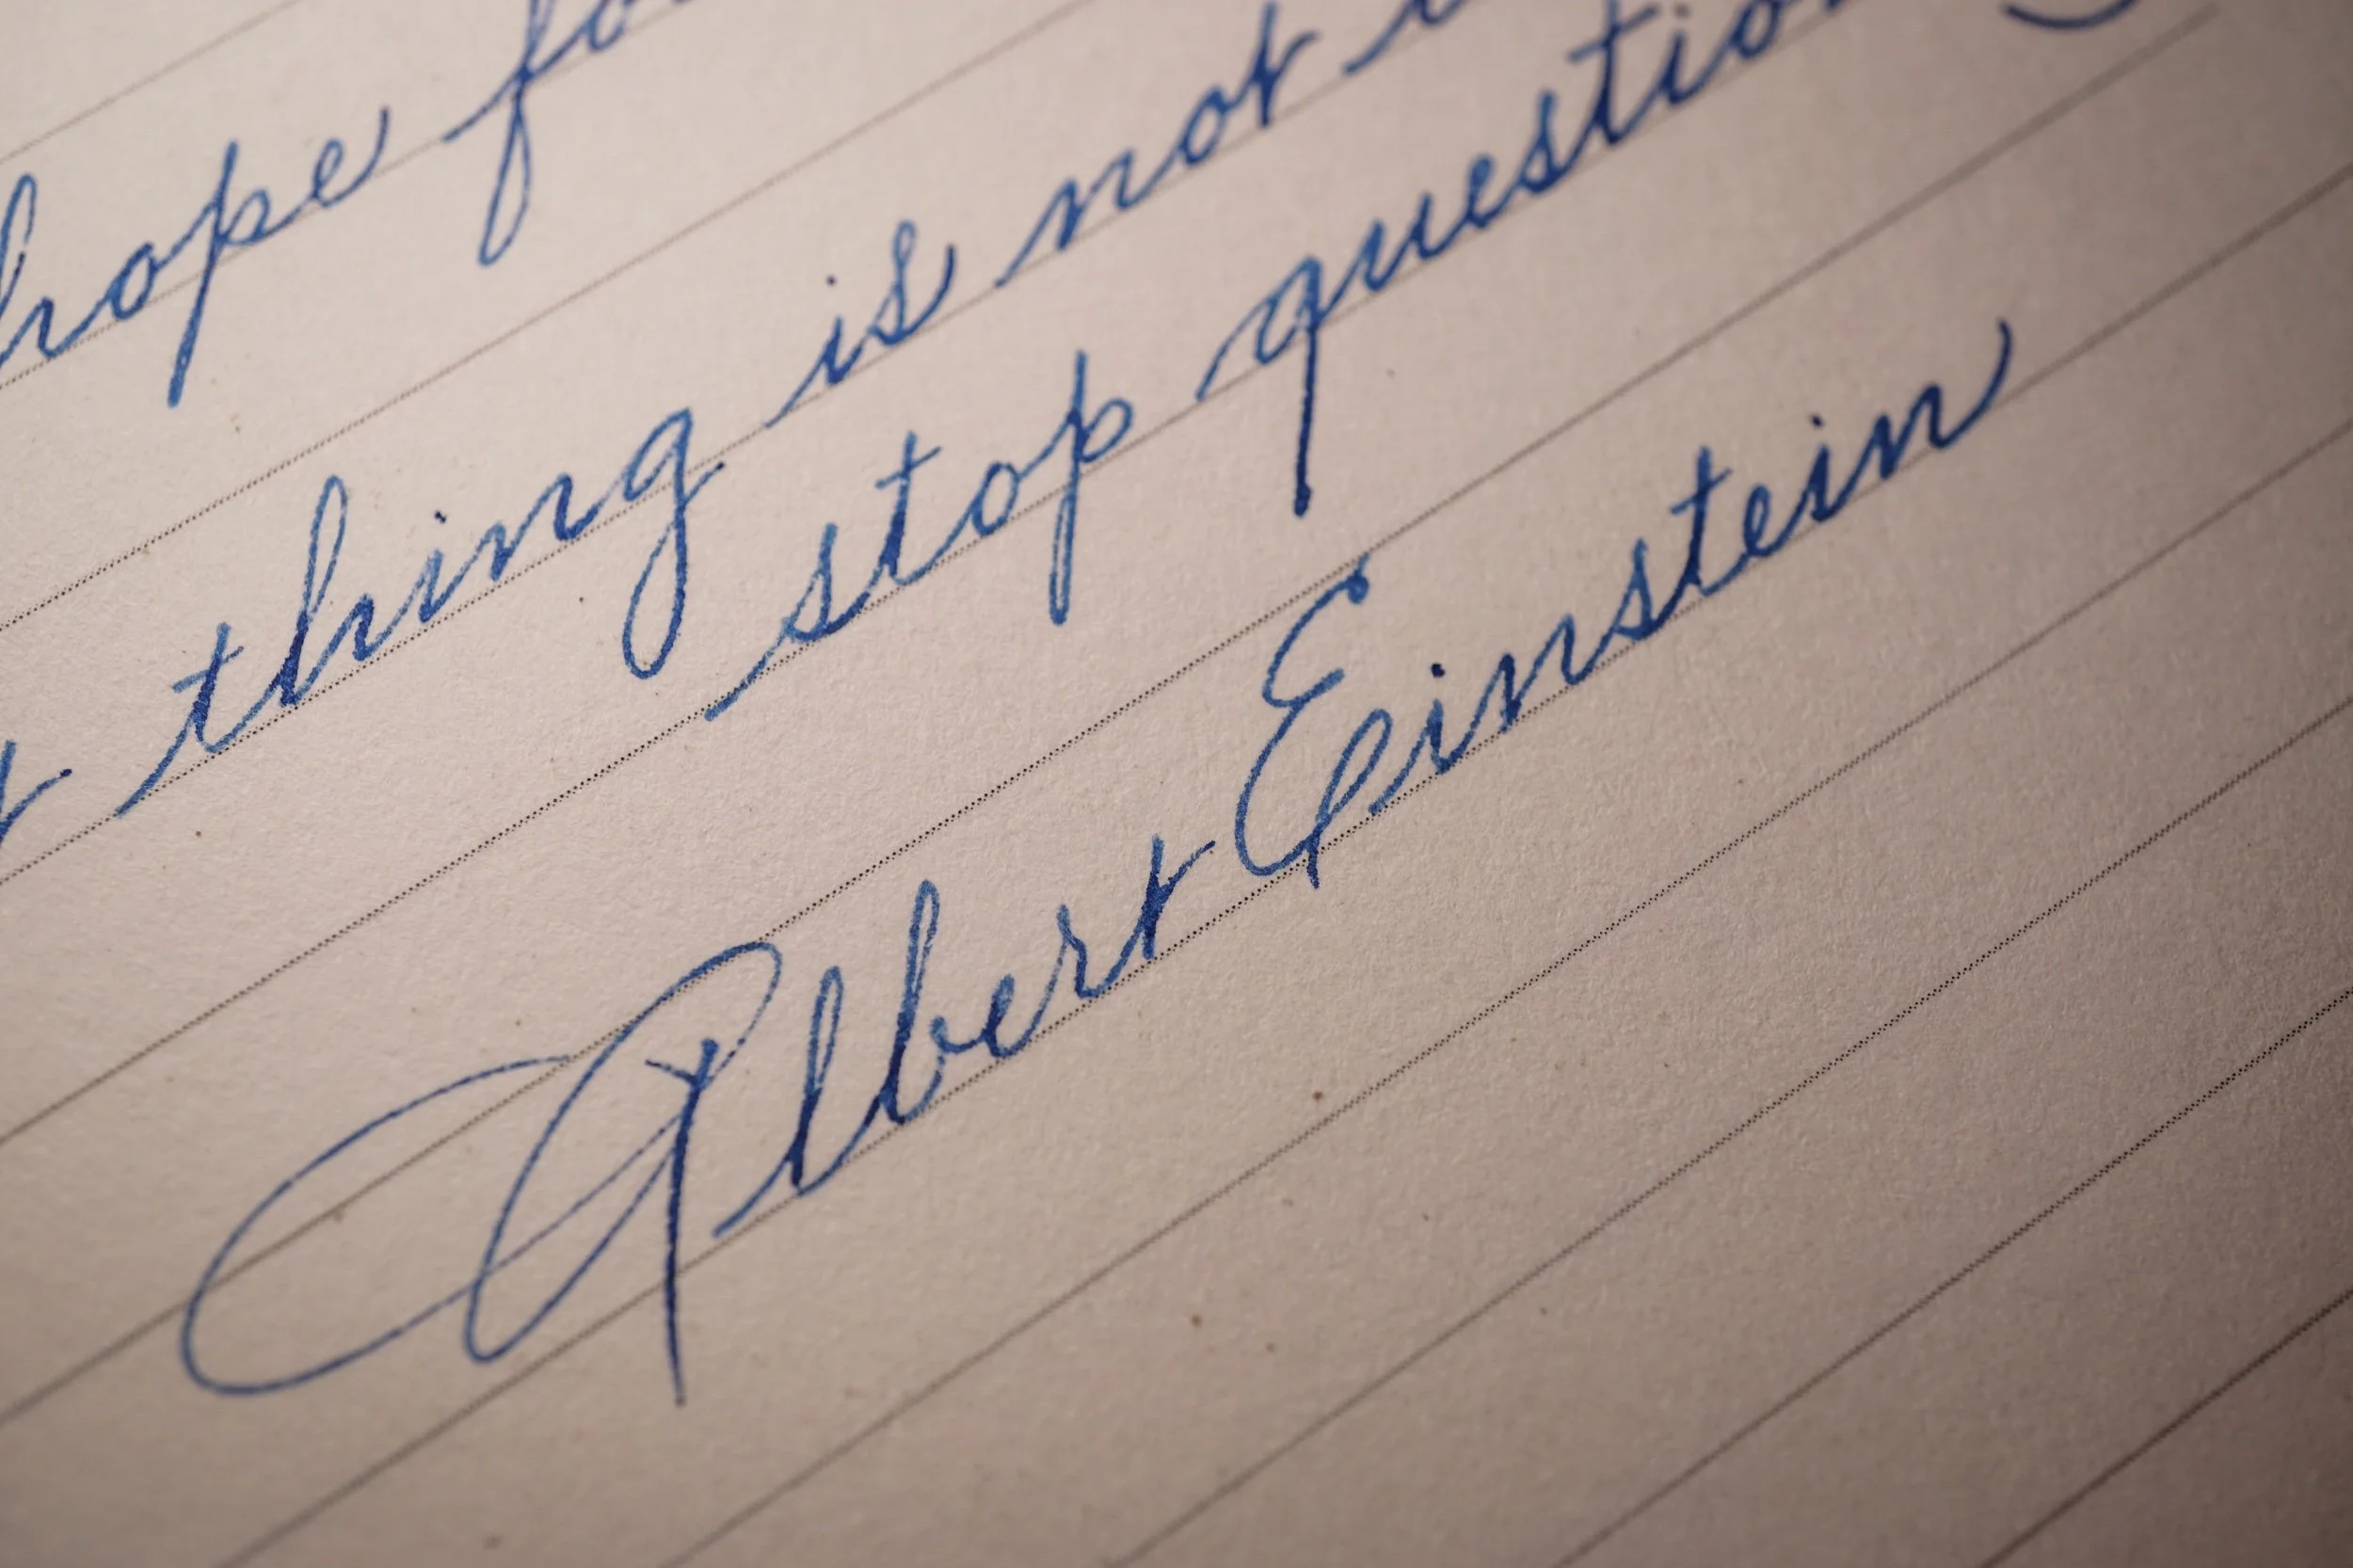 hope
thing is not
stop question
Albert Einstein